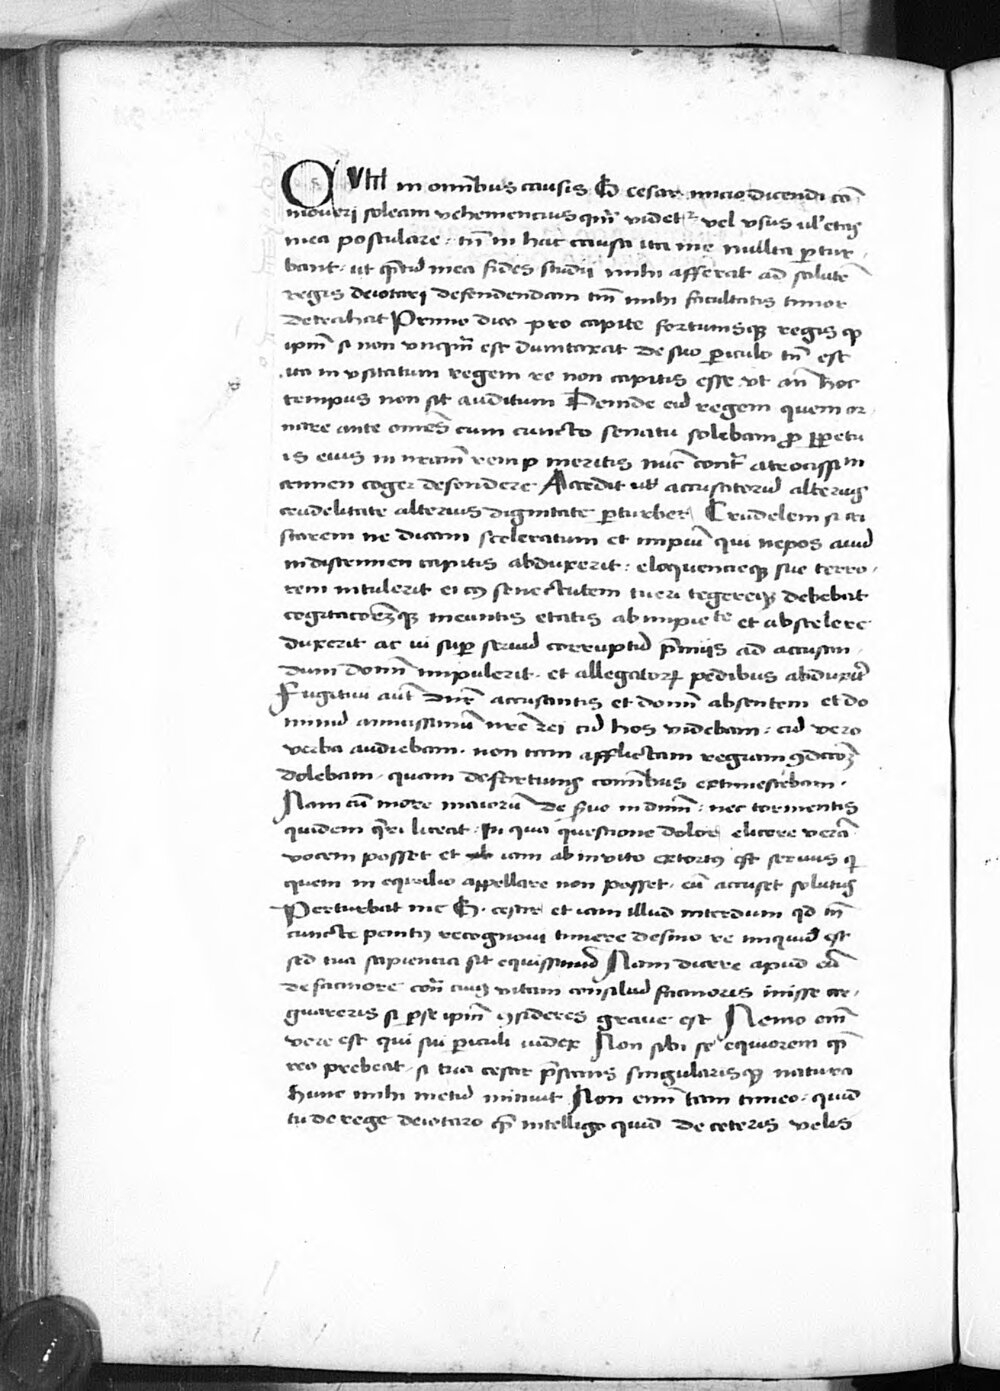 QVM in omnibus causis G cesar inicio dicendi cō
moveri soleam vehemencius qm̄ videt^r vel vsus ul' etas
mea postulare · tn̄ in hac causa ita me multa ꝑtur
bant · ut qntū mea fides studii mihi afferat ad salutē
regis deiotari defendendam tm̄ mihi facultatis timor
detrahat Primo dico pro capite fortunisqꝫ regis qꝫ
ipm̄ si non vnqm̄ est dumtaxat de tuo ꝑiculo tn̄ est
ita in vsitatum regem re non capitis esse vt an̄ hoc
tempus non sit auditum Deinde eū regem quem or
nare ante omēs cum cuncto senatu solebam ꝓ ꝑpetu
is eius in nr̄am rem p meritis nūc cont^a atrocissim
crimen cogor defendere Accedit ut accusatorū alterius
crudelitate alterius dignitate ꝑturber Crudelem si cri
storem ne dicam sceleratum et impiū qui nepos auū
in discrimen capitis adduxerit : eloquencieqꝫ sue terro
rem intulerit ei cꝰ senectutem tueri tegereqꝫ debebat
cogitacōemqꝫ ineuntis etatis ab impiete et abscelere
duxerit ac ui suꝑ seruū corruptū p̄miis ad accusan
dum domī impulerit · et allegatorꝝ pedibus abduxit
Fugitiui aut̄ dnm̄ accusantis et domī absentem et do
minū amicissimū nr̄e rei cū hos videbam : cū vero
verba audiebam · non tam afflictam regiam ꝯdicōꝫ
dolebam · quam de fortunis cōmibus extimescebam ·
Nam cū more maiorū de ſuo in dnm̄ : nec tormentis
quidem q̄ri liceat · In qua questione dolor elicere verā
vocem posset et ab iam ab invito extortꝰ est seruus qi
quem in equuleo appellare non posset · eū accuset solutus
Perturbat me G · cesar et iam illud interdum qd tn̄
cuncte penitꝰ recognoui timere desino re iniquū est
sed tua sapientia fit equissimū Nam dicere apud eū
de facinore con^a cuiꝰ vitam consiliū facinoris inisse ar
guareris si ꝑ se ipm̄ ꝯsideres graue est Nemo eni͞
vere est qui sui ꝑiculi iudex Non sibi se equiorem qꝫ
reo prebeat · si tua cesar p̄stans singularisqꝫ natura
hunc mihi metū minuit Non eni͞ tam timeo · quid
tu de rege deiotaro qꝫ intelligo quid de ceteris velis